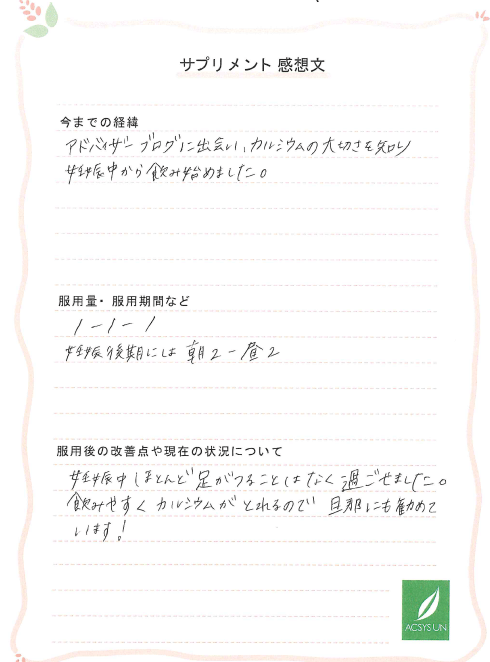 サプリメント 感想文
今までの経緯
アドバイザーブログに出会い、カルシウムの大切さを知り
妊娠中から飲み始めました。
服用量・服用期間など
1－1－1
妊娠後期には 朝2－昼2
服用後の改善点や現在の状況について
妊娠中ほとんど足がつることはなく過ごせました。
飲みやすくカルシウムがとれるので 旦那にも勧めて
います!
ACSYSUN